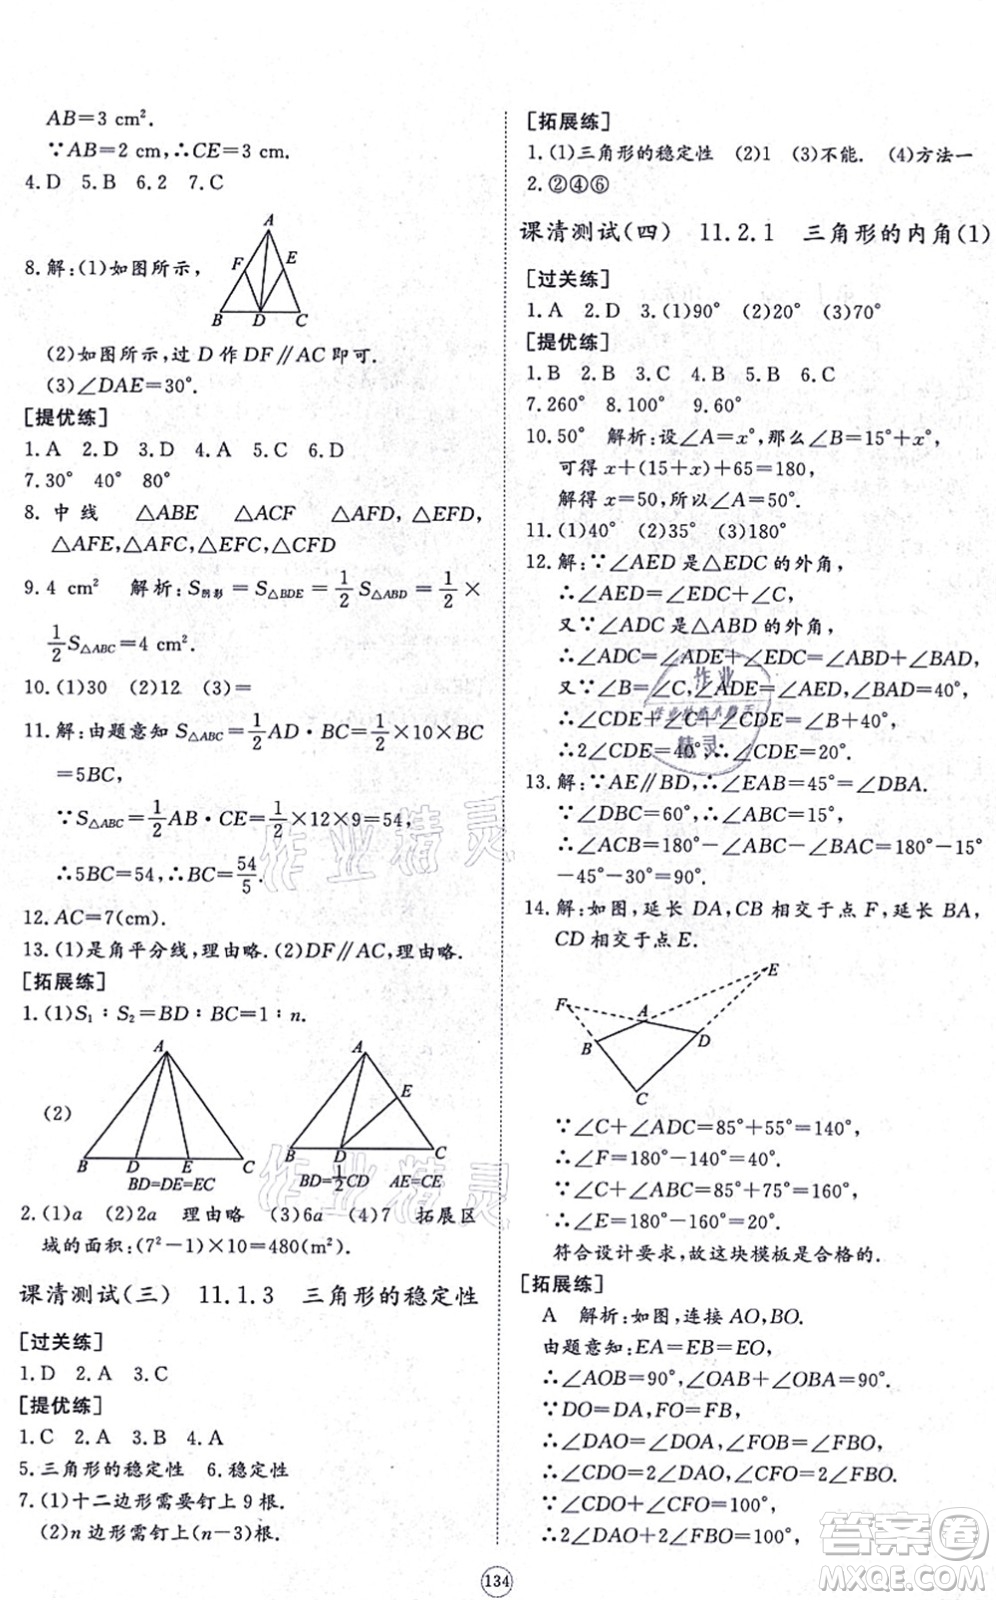 AB=3 cm².
∵AB=2 cm,∴CE=3 cm.
4.D 5.B 6.2 7.C
8.解:(1)如图所示,
A
F E
B D C
(2)如图所示,过 D 作 DF∥AC 即可.
(3)∠DAE=30°.
[提优练]
1.A 2.D 3.D 4.A 5.C 6.D
7.30° 40° 80°
8.中线 △ABE △ACF △AFD,△EFD,
△AFE,△AFC,△EFC,△CFD
9.4 cm² 解析:S阴影=S△BDE=1/2S△ABD=1/2×
1/2S△ABC=4 cm².
10.(1)30 (2)12 (3)=
11.解:由题意知 S△ABC=1/2AD·BC=1/2×10×BC
=5BC,
∵S△ABC=1/2AB·CE=1/2×12×9=54,
∴5BC=54,∴BC=54/5.
12.AC=7(cm).
13.(1)是角平分线,理由略.(2)DF∥AC,理由略.
[拓展练]
1.(1)S₁∶S₂=BD∶BC=1∶n.
(2)
A
B D E C
BD=DE=EC
A
E
B D C
BD=1/2CD AE=CE
2.(1)a (2)2a 理由略 (3)6a (4)7 拓展区
域的面积:(7²-1)×10=480(m²).
课清测试(三) 11.1.3 三角形的稳定性
[过关练]
1.D 2.A 3.C
[提优练]
1.C 2.A 3.B 4.A
5.三角形的稳定性 6.稳定性
7.(1)十二边形需要钉上 9 根.
(2)n 边形需钉上(n-3)根.
[拓展练]
1.(1)三角形的稳定性 (2)1 (3)不能. (4)方法一
2.②④⑥
课清测试(四) 11.2.1 三角形的内角(1)
[过关练]
1.A 2.D 3.(1)90° (2)20° (3)70°
[提优练]
1.B 2.B 3.C 4.B 5.B 6.C
7.260° 8.100° 9.60°
10.50° 解析:设∠A=x°,那么∠B=15°+x°,
可得 x+(15+x)+65=180,
解得 x=50,所以∠A=50°.
11.(1)40° (2)35° (3)180°
12.解:∵∠AED 是△EDC 的外角,
∴∠AED=∠EDC+∠C,
又∵∠ADC 是△ABD 的外角,
∴∠ADC=∠ADE+∠EDC=∠ABD+∠BAD,
又∵∠B=∠C,∠ADE=∠AED,∠BAD=40°,
∴∠CDE+∠C+∠CDE=∠B+40°,
∴2∠CDE=40°,∠CDE=20°.
13.解:∵AE∥BD,∴∠EAB=45°=∠DBA.
∵∠DBC=60°,∴∠ABC=15°,
∴∠ACB=180°-∠BAC-∠ABC=180°-15°
-45°-30°=90°.
14.解:如图,延长 DA,CB 相交于点 F,延长 BA,
CD 相交于点 E.
E
F A
B D
C
∵∠C+∠ADC=85°+55°=140°,
∴∠F=180°-140°=40°.
∵∠C+∠ABC=85°+75°=160°,
∴∠E=180°-160°=20°.
符合设计要求,故这块模板是合格的.
[拓展练]
A 解析:如图,连接 AO,BO.
由题意知:EA=EB=EO,
∴∠AOB=90°,∠OAB+∠OBA=90°,
∵DO=DA,FO=FB,
∴∠DAO=∠DOA,∠FOB=∠FBO,
∴∠CDO=2∠DAO,∠CFO=2∠FBO,
∵∠CDO+∠CFO=100°,
∴2∠DAO+2∠FBO=100°,
134
作业精灵
作业精灵
作业
精灵
答案圈
MXQE.COM